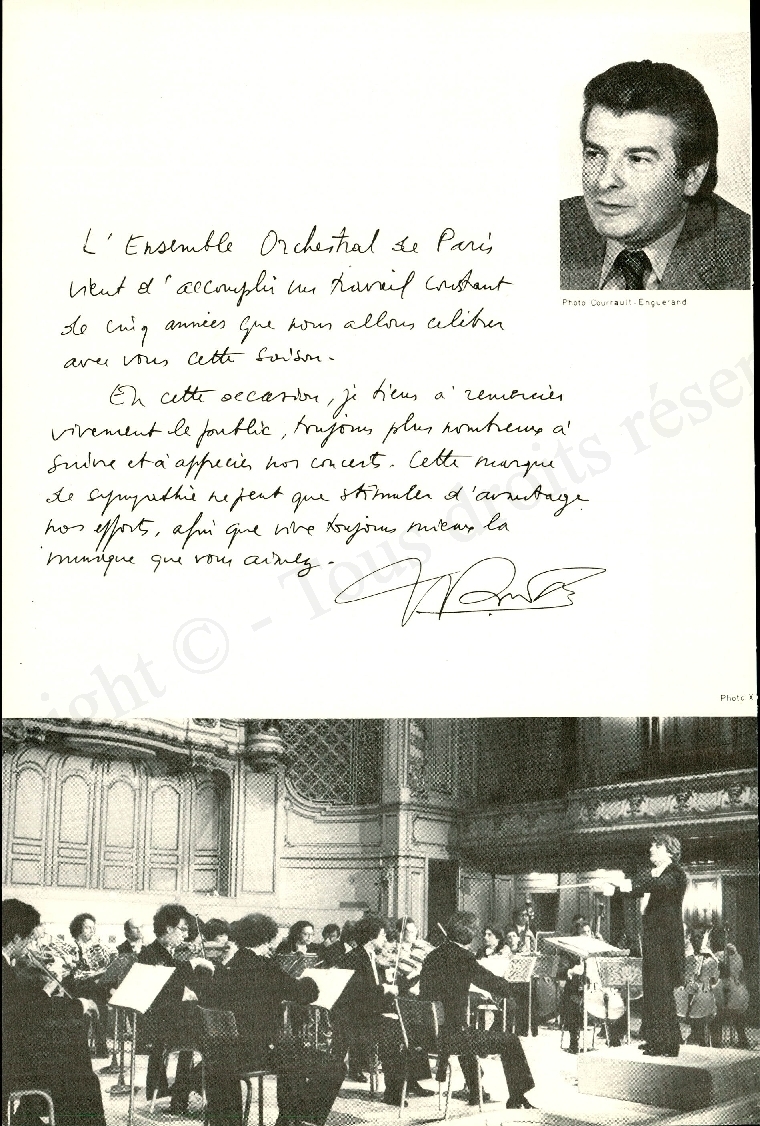 L' Ensemble Orchestral de Paris
vient d'accomplir un travail constant
de cinq années que nous allons célébrer
avec vous cette saison.
En cette occasion, je tiens à remercier
vivement le public, toujours plus nombreux à
suivre et à apprécier nos concerts. Cette marque
de sympathie ne peut que stimuler d'avantage
nos efforts, afin que vive toujours mieux la
musique que vous aimez.
Photo Courrault-Enguerand
Photo X
ight © - Tous droits réser